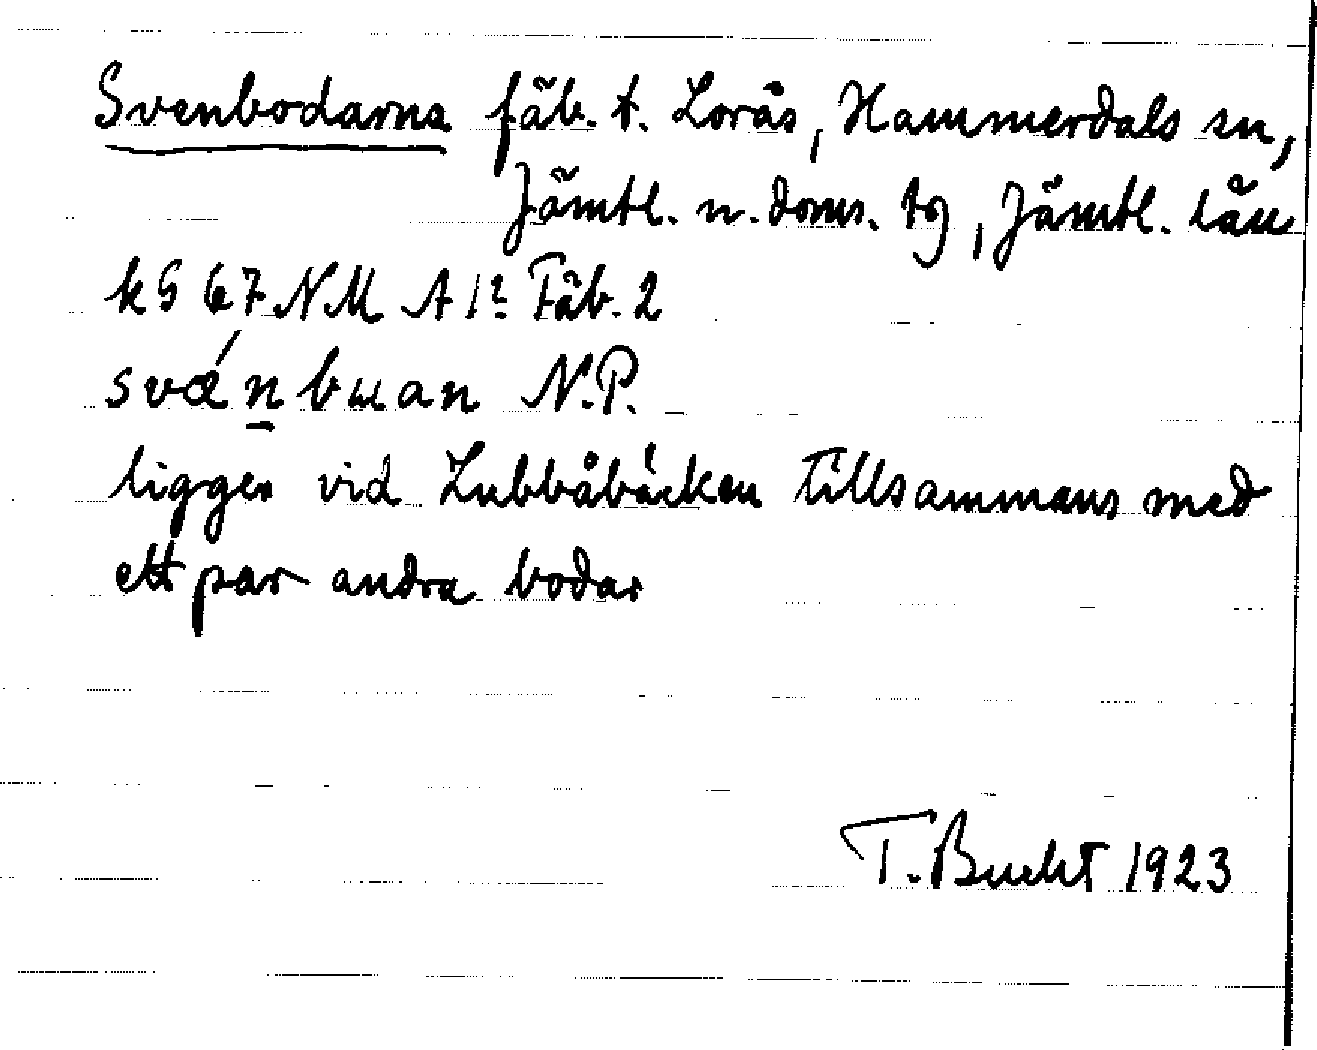 Svenbodarna fäb. t. Lorås, Hammerdals sn,
Jämtl. n. doms. tg, Jämtl. län
kG 67 NM A 1² Fäb. 2
svǽn̲buan N.P.
ligger vid Lubbåbäcken tillsammans med
ett par andra bodar
T. Bucht 1923